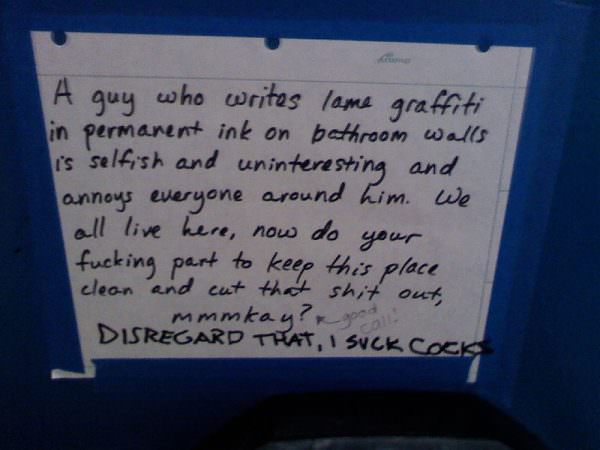 A guy who writes lame graffiti
in permanent ink on bathroom walls
is selfish and uninteresting and
annoys everyone around him. We
all live here, now do your
fucking part to keep this place
clean and cut that shit out,
mmmkay?
good
call!
DISREGARD THAT, I SUCK COCKS